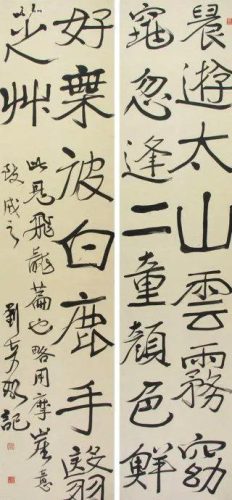 晨遊太山雲霧窈
窕忽逢二童顏色鮮
好乘彼白鹿手翳
芝艸
此見飛龍篇也略用摩崖意
致成之
劉彦湖記